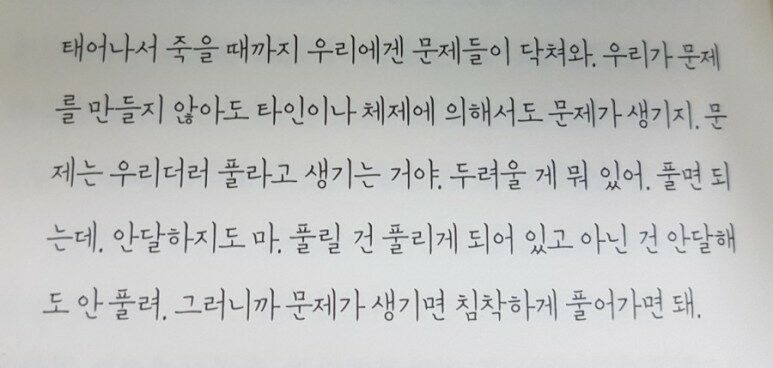 태어나서 죽을 때까지 우리에겐 문제들이 닥쳐와. 우리가 문제
를 만들지 않아도 타인이나 체제에 의해서도 문제가 생기지. 문
제는 우리더러 풀라고 생기는 거야. 두려울 게 뭐 있어. 풀면 되
는데. 안달하지도 마. 풀릴 건 풀리게 되어 있고 아닌 건 안달해
도 안 풀려. 그러니까 문제가 생기면 침착하게 풀어가면 돼.